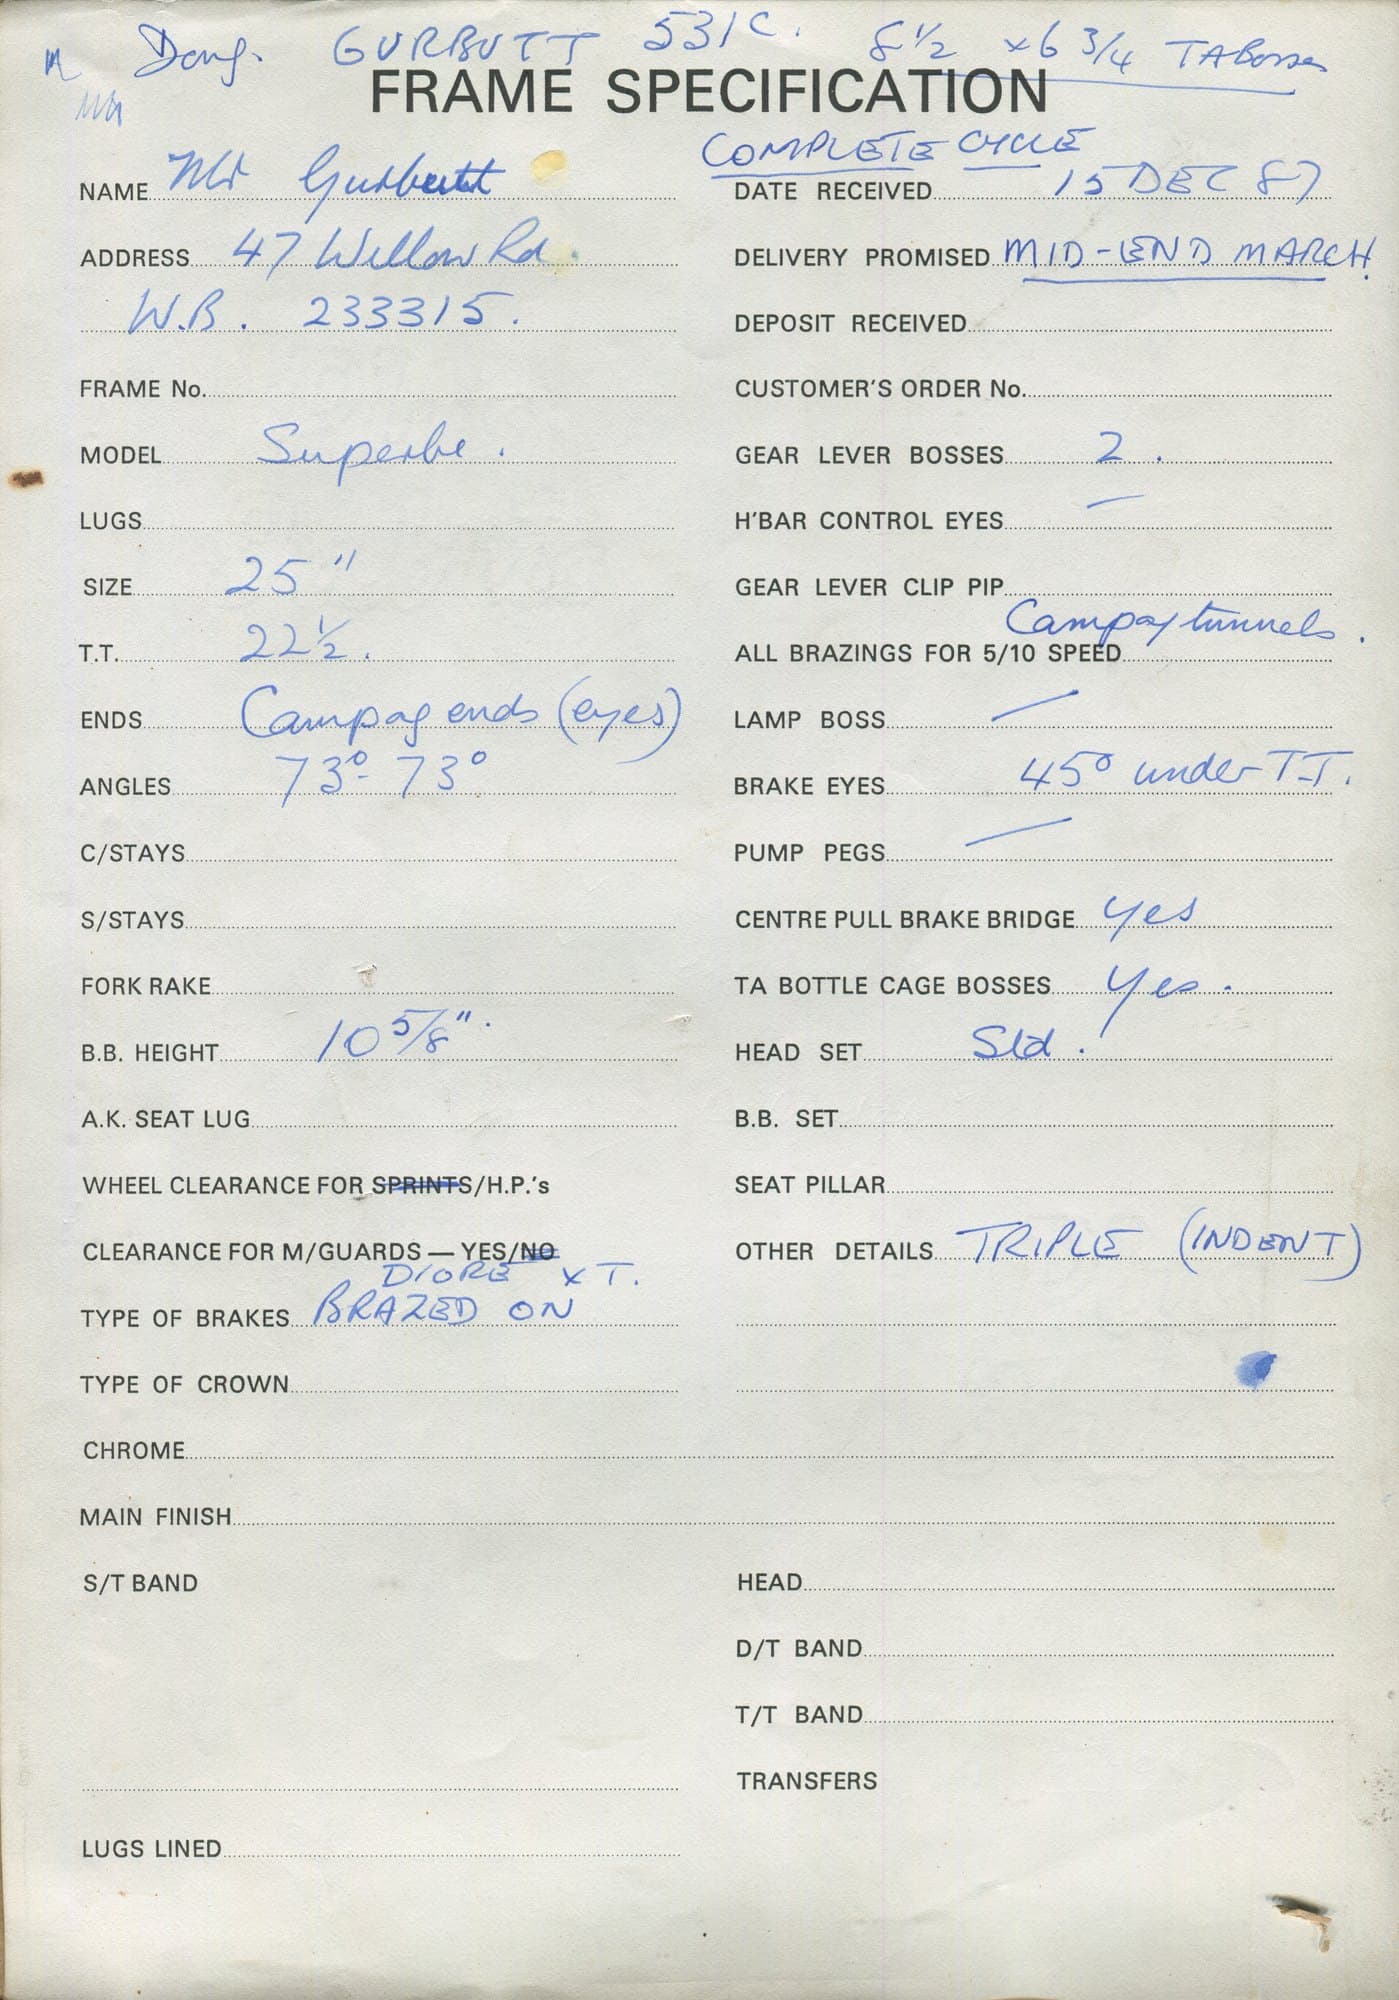 Doug. GURBUTT 531C. 8 1/2 x 6 3/4 TA Bosses
FRAME SPECIFICATION
COMPLETE CYCLE
NAME Mr Gurbutt
DATE RECEIVED 15 DEC 87
ADDRESS 47 Willow Rd.
DELIVERY PROMISED MID-END MARCH.
W.B. 233315.
DEPOSIT RECEIVED
FRAME No.
CUSTOMER'S ORDER No.
MODEL Superbe.
GEAR LEVER BOSSES 2.
LUGS
H'BAR CONTROL EYES —
SIZE 25"
GEAR LEVER CLIP PIP
T.T. 22 1/2.
ALL BRAZINGS FOR 5/10 SPEED Campag tunnels.
ENDS Campag ends (eyes)
LAMP BOSS —
ANGLES 73° - 73°
BRAKE EYES 45° under T.T.
C/STAYS
PUMP PEGS —
S/STAYS
CENTRE PULL BRAKE BRIDGE Yes
FORK RAKE
TA BOTTLE CAGE BOSSES Yes.
B.B. HEIGHT 10 5/8".
HEAD SET Std.
A.K. SEAT LUG
B.B. SET
WHEEL CLEARANCE FOR SPRINTS/H.P.'s
SEAT PILLAR
CLEARANCE FOR M/GUARDS — YES/NO
OTHER DETAILS TRIPLE (INDENT)
XT.
TYPE OF BRAKES BRAZED ON
TYPE OF CROWN
CHROME
MAIN FINISH
S/T BAND
HEAD
D/T BAND
T/T BAND
TRANSFERS
LUGS LINED